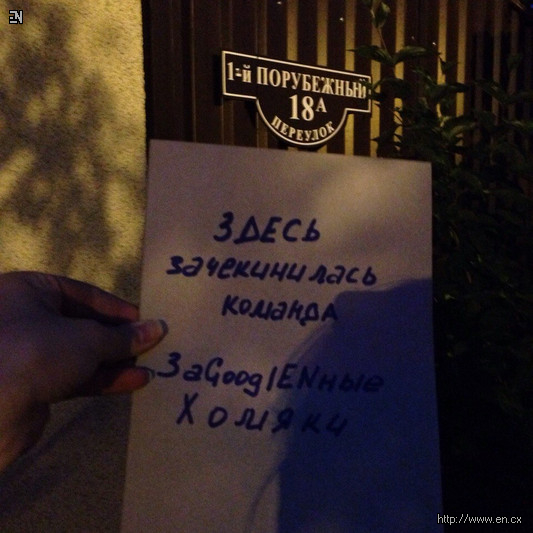 EN
1-й ПОРУБЕЖНЫЙ
18А
ПЕРЕУЛОК
ЗДЕСЬ
зачекинилась
команда
ЗаGooglENные
Хомяки
http://www.en.cx